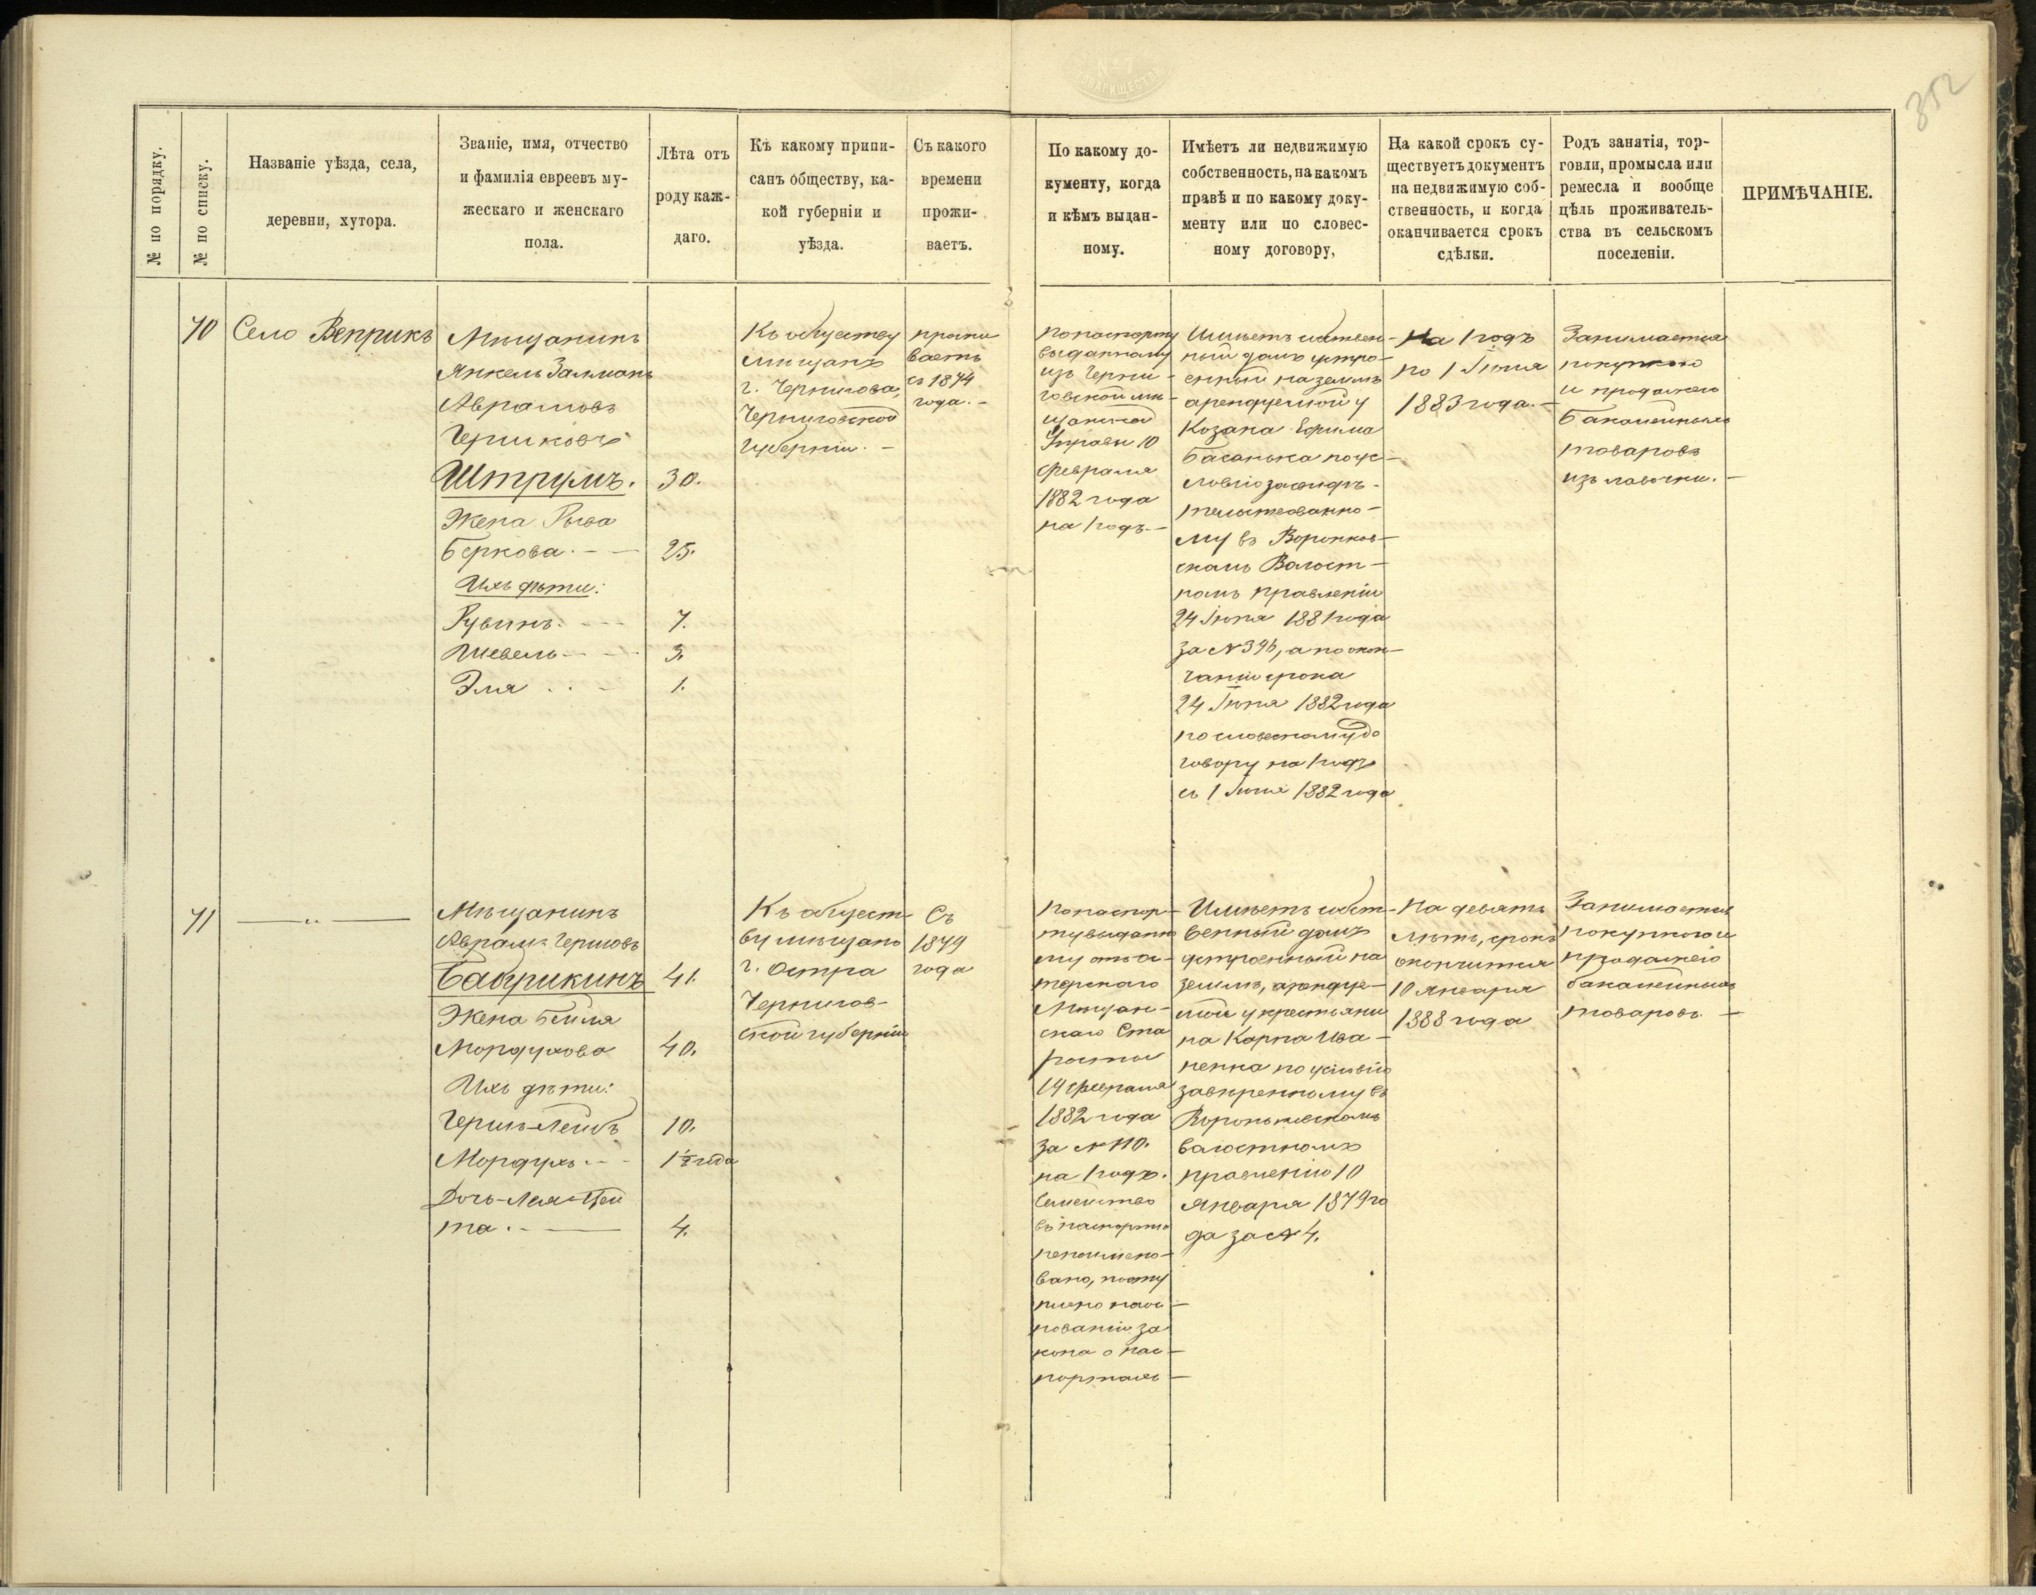 352
№ по порядку.
№ по списку.
Названіе уѣзда, села,
деревни, хутора.
Званіе, имя, отчество
и фамилія евреевъ му-
жескаго и женскаго
пола.
Лѣта отъ
роду каж-
даго.
Къ какому припи-
санъ обществу, ка-
кой губерніи и
уѣзда.
Съ какого
времени
прожи-
ваетъ.
По какому до-
кументу, когда
и кѣмъ выдан-
ному.
Имѣетъ ли недвижимую
собственность, на какомъ
правѣ и по какому доку-
менту или по словес-
ному договору,
На какой срокъ су-
ществуетъ документъ
на недвижимую соб-
ственность, и когда
оканчивается срокъ
сдѣлки.
Родъ занятія, тор-
говли, промысла или
ремесла и вообще
цѣль проживатель-
ства въ сельскомъ
поселеніи.
ПРИМѢЧАНІЕ.
70
Село Веприкъ
Мѣщанинъ
Янкель Залманъ
Абрамовъ
Гершковъ
Штрумъ.
30.
Жена Рыва
Беркова. — —
25.
Ихъ дѣти:
Рувинъ. - - -
7.
Шевель - - -
3.
Эля . . -
1.
Къ обществу
мѣщанъ
г. Чернигова,
Черниговской
губерніи. —
прожи
ваетъ
съ 1874
года. —
По паспорту
выданному
изъ Черни-
говской мѣ-
щанской
Управы 10
февраля
1882 года
на 1 годъ. —
Имѣетъ собствен-
ный домъ устро-
енный на землѣ
арендуемой у
Козака Ефима
Басанька по ус-
ловію засвидѣ-
тельствованно-
му въ Воронков-
скомъ Волост-
номъ правленіи
24 Іюня 1881 года
за № 396, а по окон-
чаніи срока
24 Іюня 1882 года
по словесному до
говору на 1 годъ
съ 1 Іюня 1882 года
На 1 годъ
по 1 Іюня
1883 года. —
Занимается
покупкою
и продажею
бакалейныхъ
товаровъ
изъ лавочки. —
71
— „ —
Мѣщанинъ
Абрамъ Гершовъ
Бабрикинъ
41.
Жена Бейля
Мордухова
40.
Ихъ дѣти:
Гершъ-Лейбъ
10.
Мордухъ - -
1½ года
Дочь-Лея-Цей
та. - —
4.
Къ общест-
ву мѣщанъ
г. Остра
Чернигов-
ской губерніи
Съ
1879
года
По паспор-
ту выданно
му отъ Ос-
терскаго
Мѣщан-
скаго Ста
росты
14 февраля
1882 года
за № 110.
на 1 годъ.
Семейство
въ паспортѣ
непоимено-
вано, посту
плено на ос-
нованіи за
кона о пас-
портахъ —
Имѣетъ собст-
венный домъ
устроенный на
землѣ, арендуе-
мой у крестьяни
на Карпа Ива-
ненка по условію
завѣренному въ
Вороньковскомъ
волостномъ
правленіи 10
Января 1879 го
да за № 4.
На девять
лѣтъ, срокъ
окончится
10 Января
1888 года
Занимается
покупкою и
продажею
бакалейныхъ
товаровъ. —